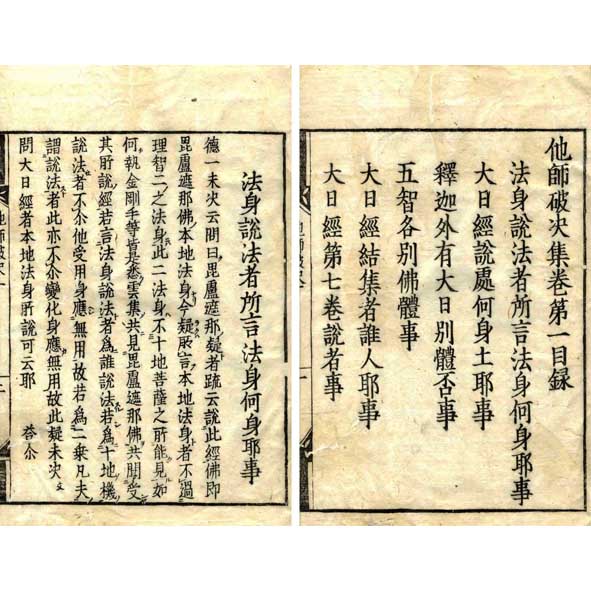 他師破决集卷第一目録
法身說法者所言法身何身耶事
大日經說處何身土耶事
釋迦外有大日別體否事
五智各別佛體事
大日經結集者誰人耶事
大日經第七卷說者事
法身說法者所言法身何身耶事
德一未决云問曰毘盧遮那疑者疏云說此經佛即
毘盧遮那佛本地法身今疑所言本地法身者不過
理智二之法身此二法身不十地菩薩之所能見如
何執金剛手等皆悉雲集共見毘盧遮那佛共聞受
其所說經若言法身說法者為誰說法若為十地機
說法者不尒他受用身應無用故若為二乗凡夫
謂說法者此亦不尒變化身應無用故此疑未决文
問大日經者本地法身所說可云耶 答尒